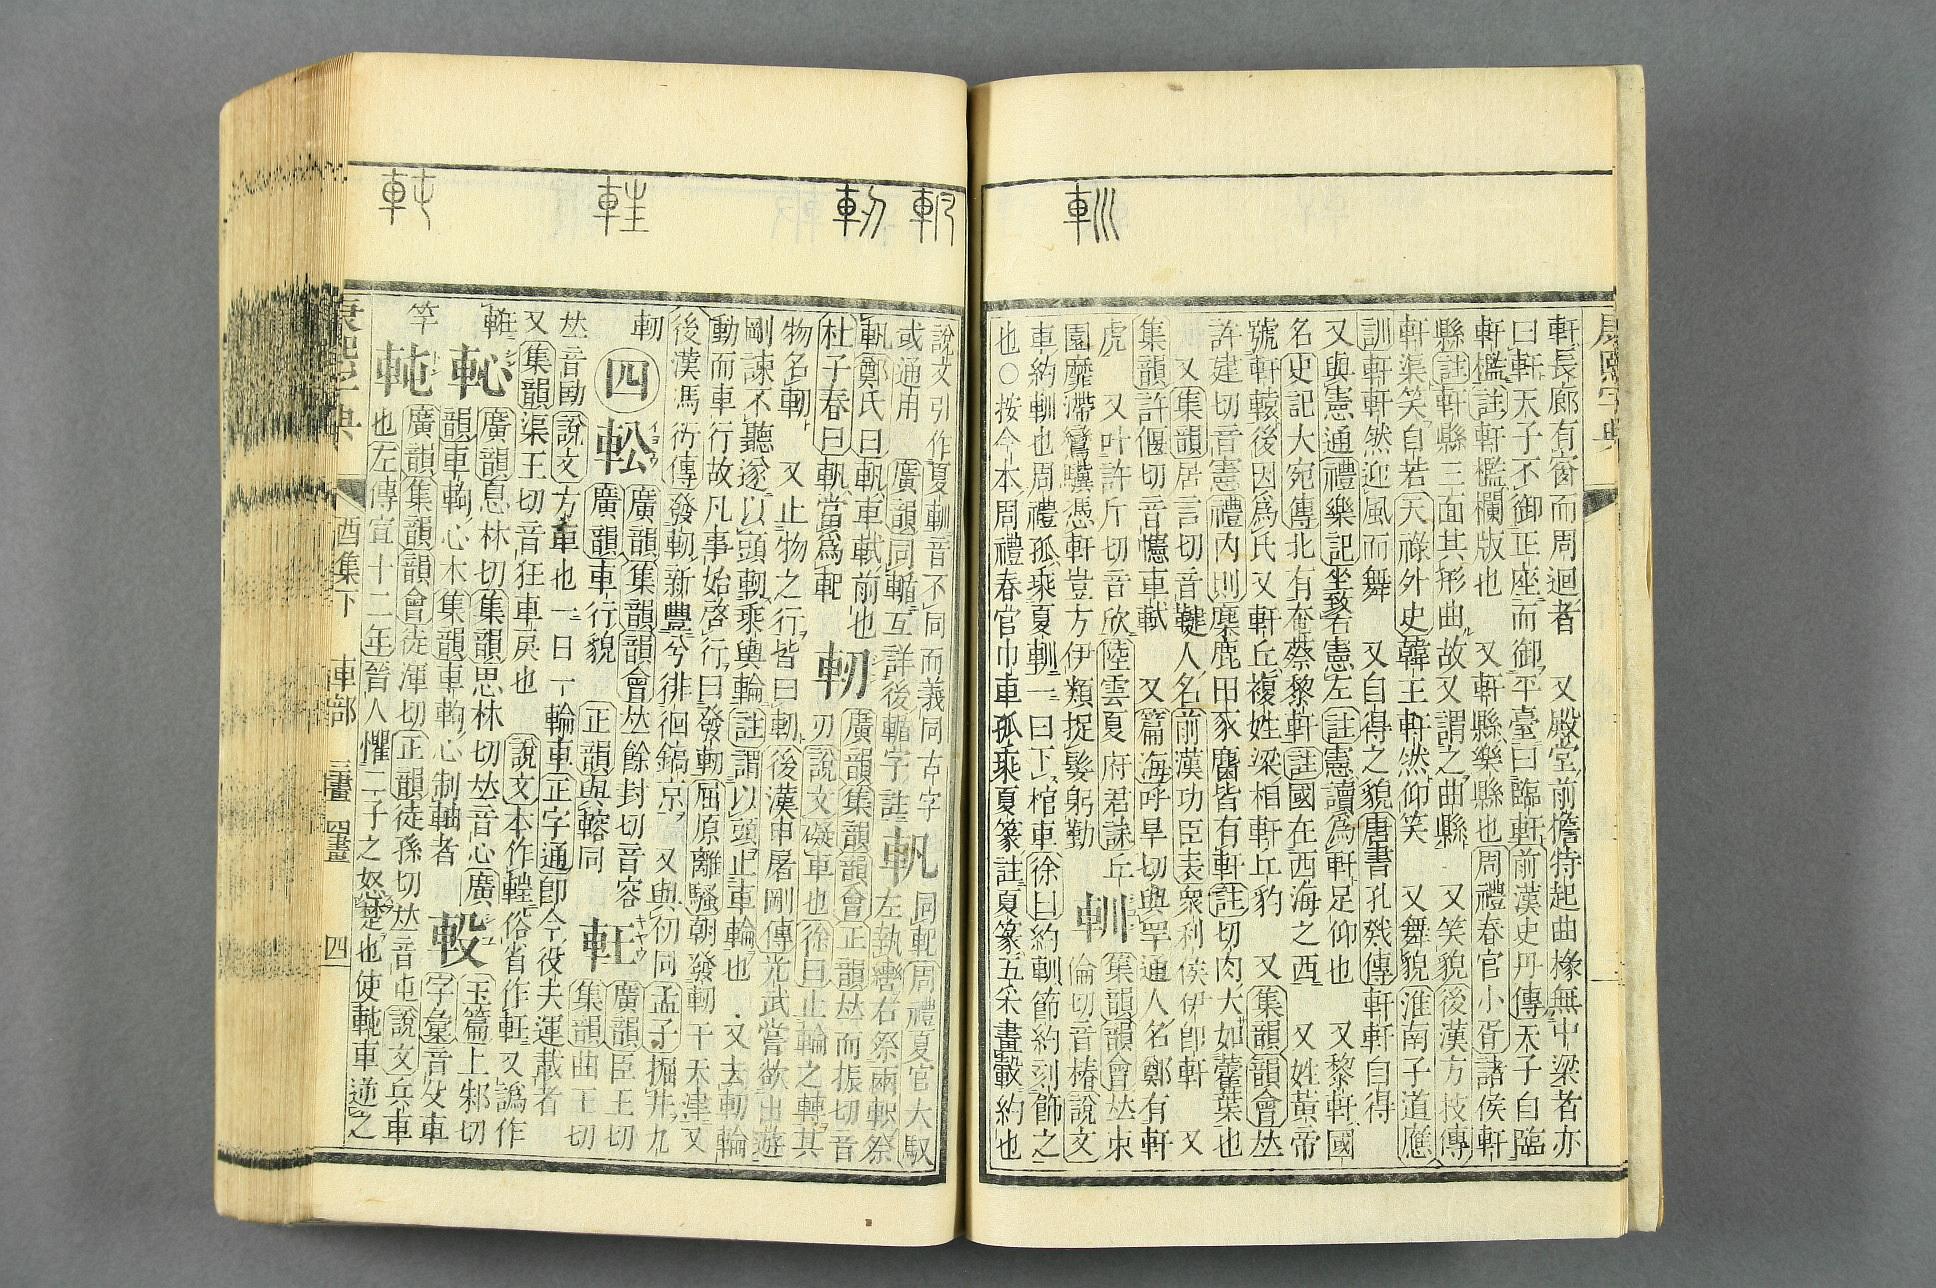 軒長廊有窗而周迴者 又殿堂前檐特起曲椽無中梁者亦
曰軒天子不御正座而御平臺曰臨軒前漢史丹傳天子自臨
軒檻註軒檻欄版也 又軒縣樂縣也周禮春官小胥諸侯軒
縣註軒縣三面其形曲故又謂之曲縣 又笑貌後漢方技傳
軒渠笑自若天祿外史韓王軒然仰笑 又舞貌淮南子道應
訓軒軒然迎風而舞 又自得之貌唐書孔戣傳軒軒自得
又與憲通禮樂記坐致右憲左註憲讀爲軒足仰也 又黎軒國
名史記大宛傳北有奄蔡黎軒註國在西海之西 又姓黃帝
號軒轅後因爲氏又軒丘複姓梁相軒丘豹 又集韻韻會𠀤
許建切音憲禮內則麋鹿田豕麕皆有軒註切肉大如藿葉也
又集韻居言切音鞬人名前漢功臣表衆利侯伊卽軒 又
集韻許偃切音幰車軾 又篇海呼旱切與罕通人名鄭有軒
虎 又叶許斤切音欣陸雲夏府君誄丘
園靡滯鸞驥憑軒豈方伊類捉髮躬勤
軐 集韻韻會𠀤朱
倫切音椿說文
車約軐也周禮孤乘夏軐一曰下棺車徐曰約軐節約刻飾之
也○按今本周禮春官巾車孤乘夏篆註夏篆五采畫轂約也
說文引作夏軐音不同而義同古字
或通用
廣韻同輴互詳後輴字註
軓 同軓周禮夏官大馭
左執轡右祭兩軹祭
軓鄭氏曰軓車軾前也
杜子春曰軓當爲軓
軔 廣韻集韻韻會正韻𠀤而振切音
刃說文礙車也徐曰止輪之轉其
物名軔 又止物之行皆曰軔後漢申屠剛傳光武嘗欲出遊
剛諫不聽遂以頭軔乘輿輪註謂以頭止車輪也 又去軔輪
動而車行故凡事始啓行曰發軔屈原離騷朝發軔于天津又
後漢馮衍傳發軔新豐兮徘徊鎬京 又與仞同孟子掘井九
軔
四
䡆 廣韻集韻韻會𠀤餘封切音容
廣韻車行貌 正韻與䡥同
軖 廣韻臣王切
集韻曲王切
𠀤音劻說文方車也一曰一輪車正字通卽今役夫運載者
又集韻渠王切音狂車戾也 說文本作𨋕俗省作軖又譌作
䡈 廣韻息林切集韻思林切𠀤音心廣
韻車鉤心木集韻車鉤心制軸者
玉篇上邾切
字彙音殳車
竿
軘 廣韻集韻韻會徒渾切正韻徒孫切𠀤音屯說文兵車
也左傳宣十二年晉人懼二子之怒楚也使軘車逆之
康熙字典
酉集下 車部 三畫 四畫 四